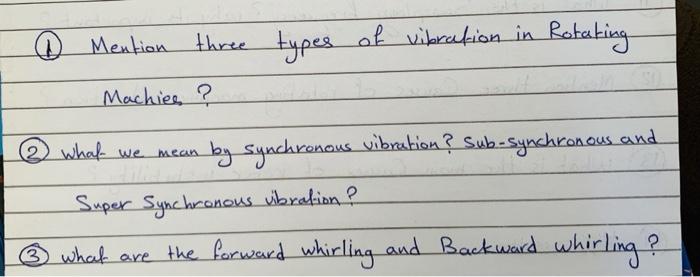 ① Mention three types of vibration in Rotating
Machies ?
② what we mean by synchronous vibration? Sub-synchronous and
Super Synchronous vibration?
③ what are the forward whirling and Backward whirling?